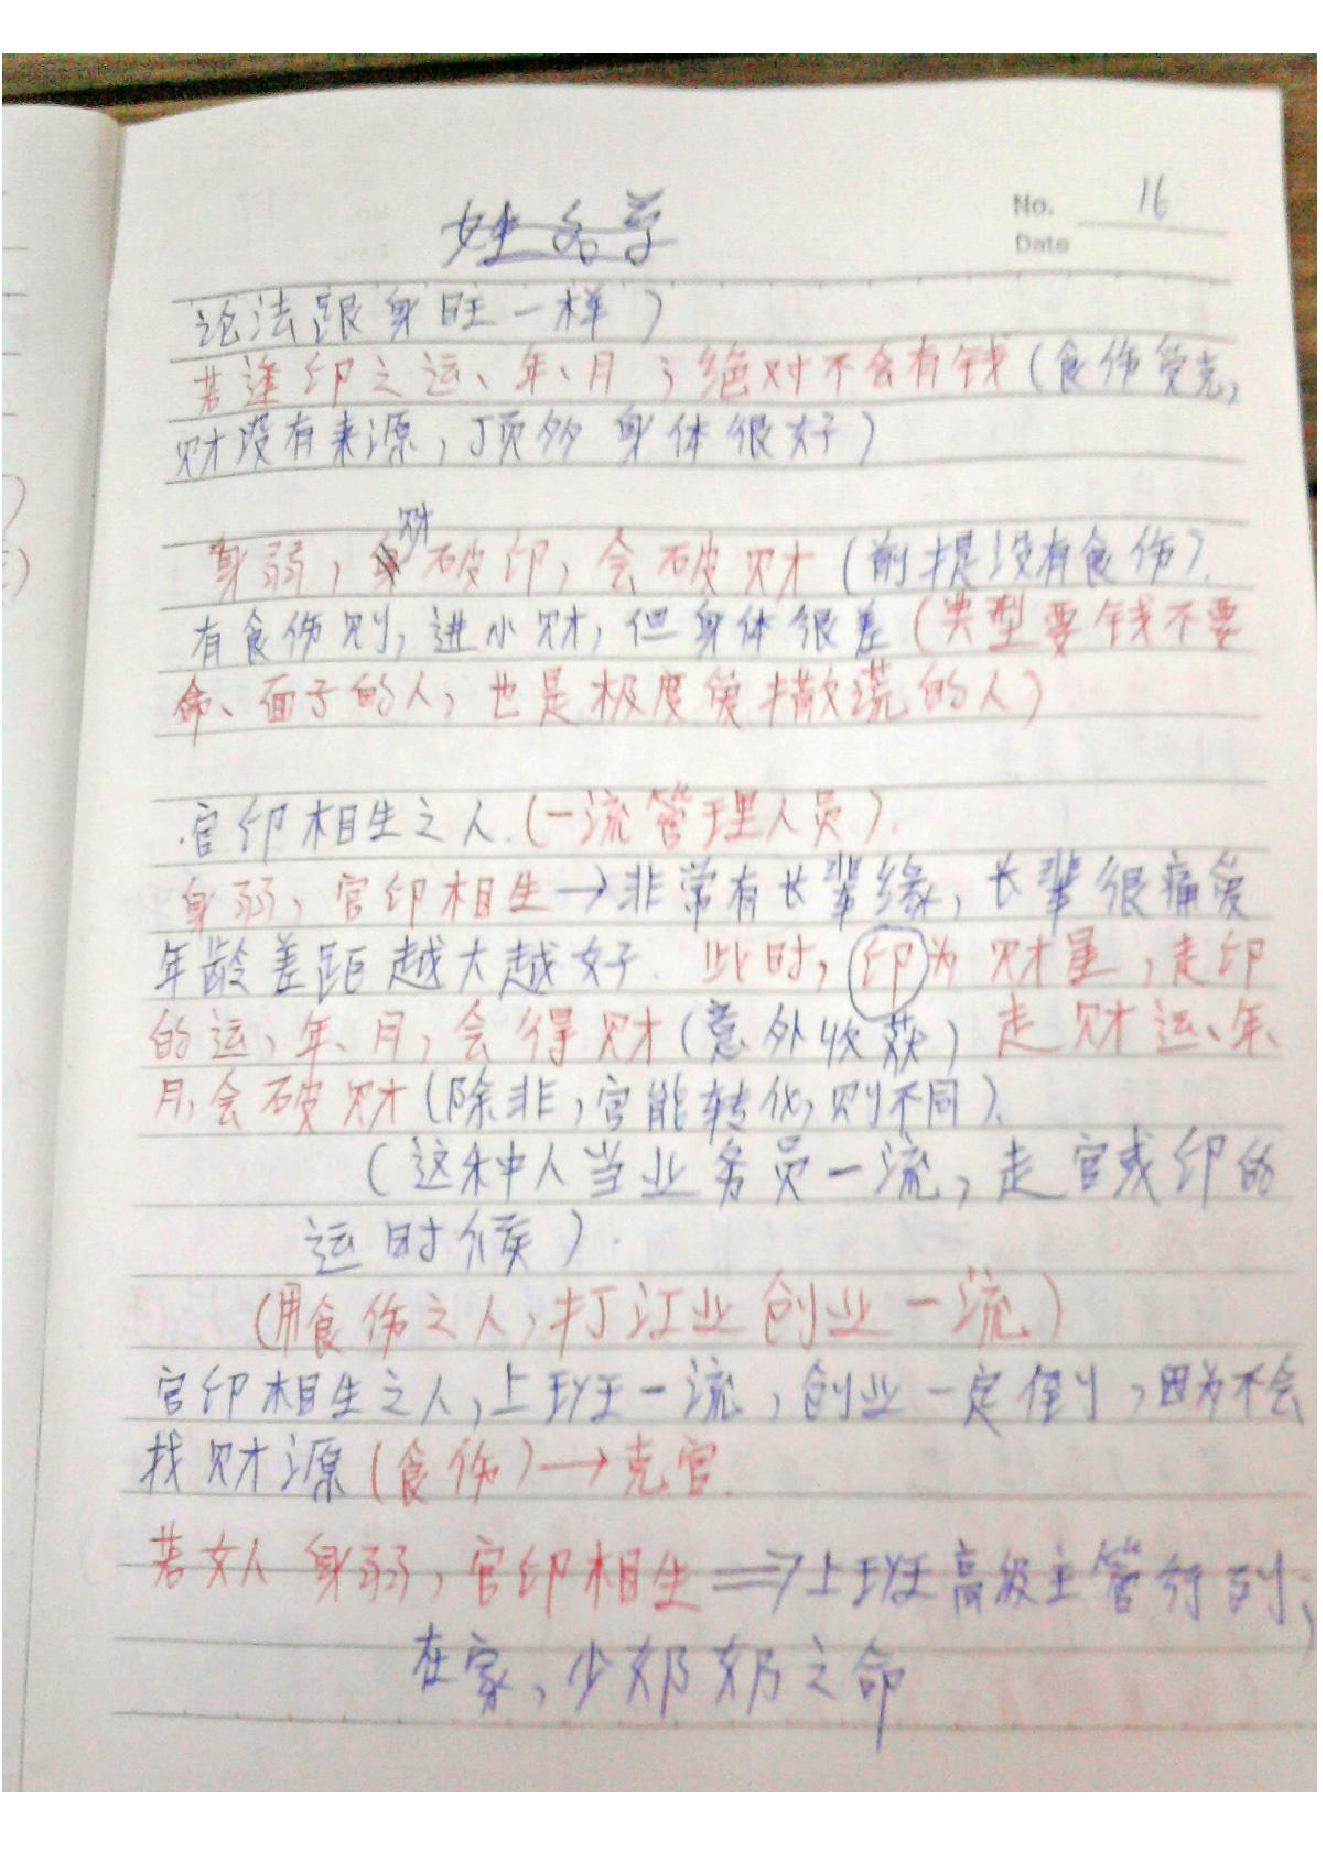 姓名学
No. 16
Date
论法跟身旺一样）
若逢印之运、年、月，绝对不会有钱（食伤受克，
财没有来源，顶多身体很好）
身弱，财破印，会破财（前提没有食伤）.
有食伤则，进小财，但身体很差（典型要钱不要
命、面子的人，也是极度爱撒谎的人）
·官印相生之人.（一流管理人员）.
身弱，官印相生→非常有长辈缘，长辈很痛爱
年龄差距越大越好. 此时，印为财星，走印
的运，年、月，会得财（意外收获）走财运、年、
月，会破财（除非，官能转化，则不同）.
（这种人当业务员一流，走官或印的
运时候）.
（用食伤之人，打江业创业一流）
官印相生之人，上班一流，创业一定倒，因为不会
找财源（食伤）→克官.
若女人身弱，官印相生⇒上班高级主管行列；
在家，少奶奶之命